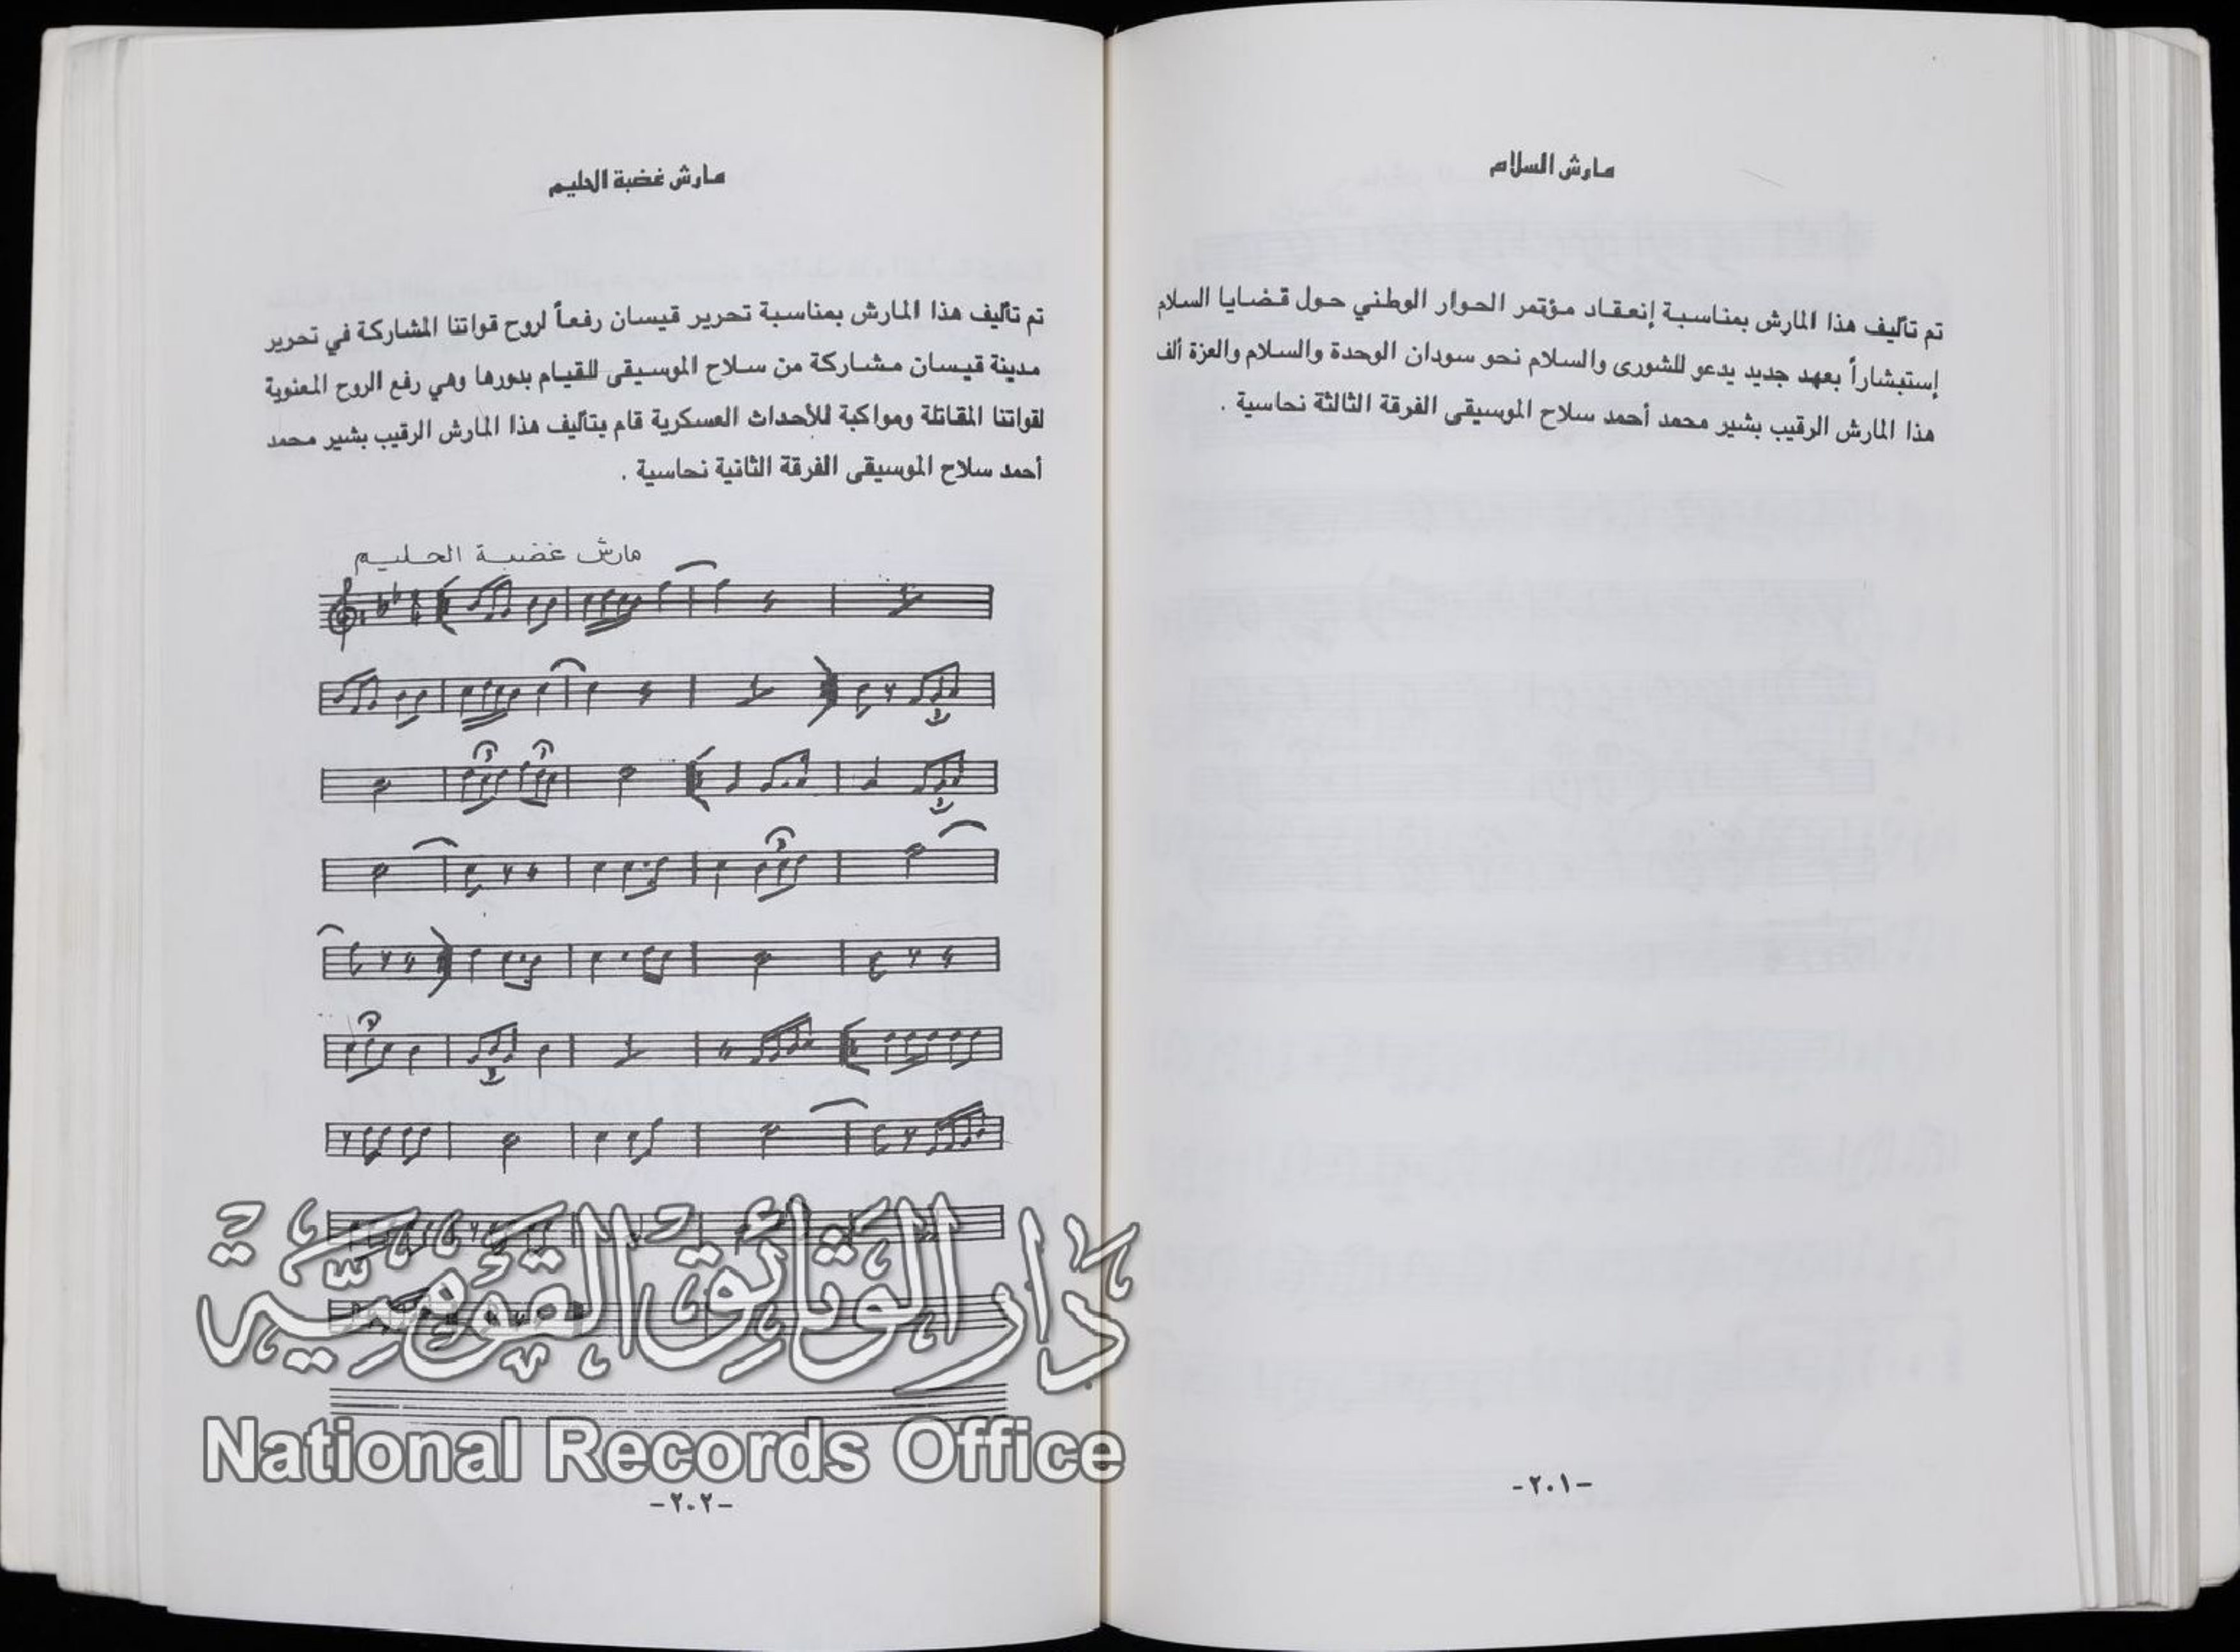 مارش السلام
تم تأليف هذا المارش بمناسبة إنعقاد مؤتمر الحوار الوطني حول قضايا السلام
إستبشاراً بعهد جديد يدعو للشورى والسلام نحو سودان الوحدة والسلام والعزة ألف
هذا المارش الرقيب بشير محمد أحمد سلاح الموسيقى الفرقة الثالثة نحاسية .
-٢٠١-
مارش غضبة الحليم
تم تأليف هذا المارش بمناسبة تحرير قيسان رفعاً لروح قواتنا المشاركة في تحرير
مدينة قيسان مشاركة من سلاح الموسيقى للقيام بدورها وهي رفع الروح المعنوية
لقواتنا المقاتلة ومواكبة للأحداث العسكرية قام بتأليف هذا المارش الرقيب بشير محمد
أحمد سلاح الموسيقى الفرقة الثانية نحاسية .
مارش غضبة الحليم
دَار الوَثائِق القَوميَّة
National Records Office
-٢٠٢-